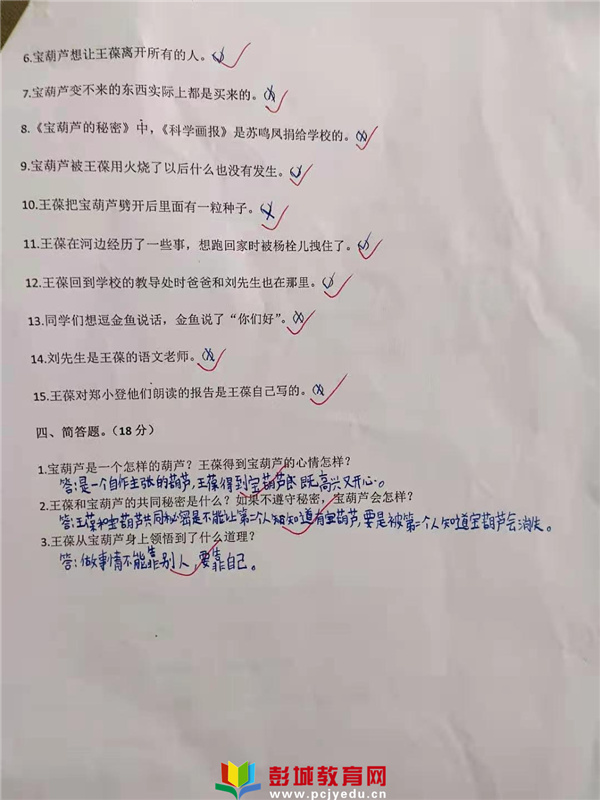 6.宝葫芦想让王葆离开所有的人。(√)
7.宝葫芦变不来的东西实际上都是买来的。(×)
8.《宝葫芦的秘密》中,《科学画报》是苏鸣凤捐给学校的。(×)
9.宝葫芦被王葆用火烧了以后什么也没有发生。(√)
10.王葆把宝葫芦劈开后里面有一粒种子。(×)
11.王葆在河边经历了一些事,想跑回家时被杨栓儿拽住了。(√)
12.王葆回到学校的教导处时爸爸和刘先生也在那里。(√)
13.同学们想逗金鱼说话,金鱼说了“你们好”。(×)
14.刘先生是王葆的语文老师。(×)
15.王葆对郑小登他们朗读的报告是王葆自己写的。(×)
四、简答题。(18分)
1.宝葫芦是一个怎样的葫芦?王葆得到宝葫芦的心情怎样?
答:是一个自作主张的葫芦,王葆得到宝葫芦既高兴又开心。
2.王葆和宝葫芦的共同秘密是什么?如果不遵守秘密,宝葫芦会怎样?
答:王葆和宝葫芦共同秘密是不能让第二个人知道有宝葫芦,要是被第二个人知道宝葫芦会消失。
3.王葆从宝葫芦身上领悟到了什么道理?
答:做事情不能靠别人,要靠自己。
彭城教育网
www.pcjyedu.cn